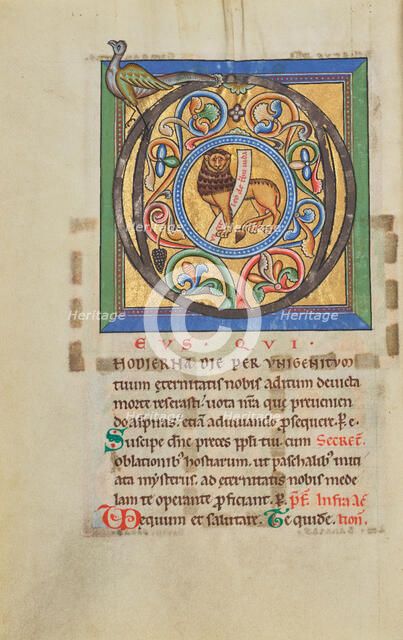 EVS. QVI.
HODIERNA DIE PER VNIGENITVM
tuum ęternitatis nobis aditum deuicta
morte reserasti: uota nr̄a que preuenien
do aspiras. etiā adiuuando ꝓsequere. P. e.
Suscipe dn̄e preces ppl̄i tui cum Secret̄.
oblationib; hostiarum. ut paschalib; inici
ata mysteriis. ad ęternitatis nobis mede
lam te operante proficiant. P. P̄f. Infra ac̄
equum et salutare. Te quidē. tion̄.
Heritage
Heritage
Heritage
Heritage